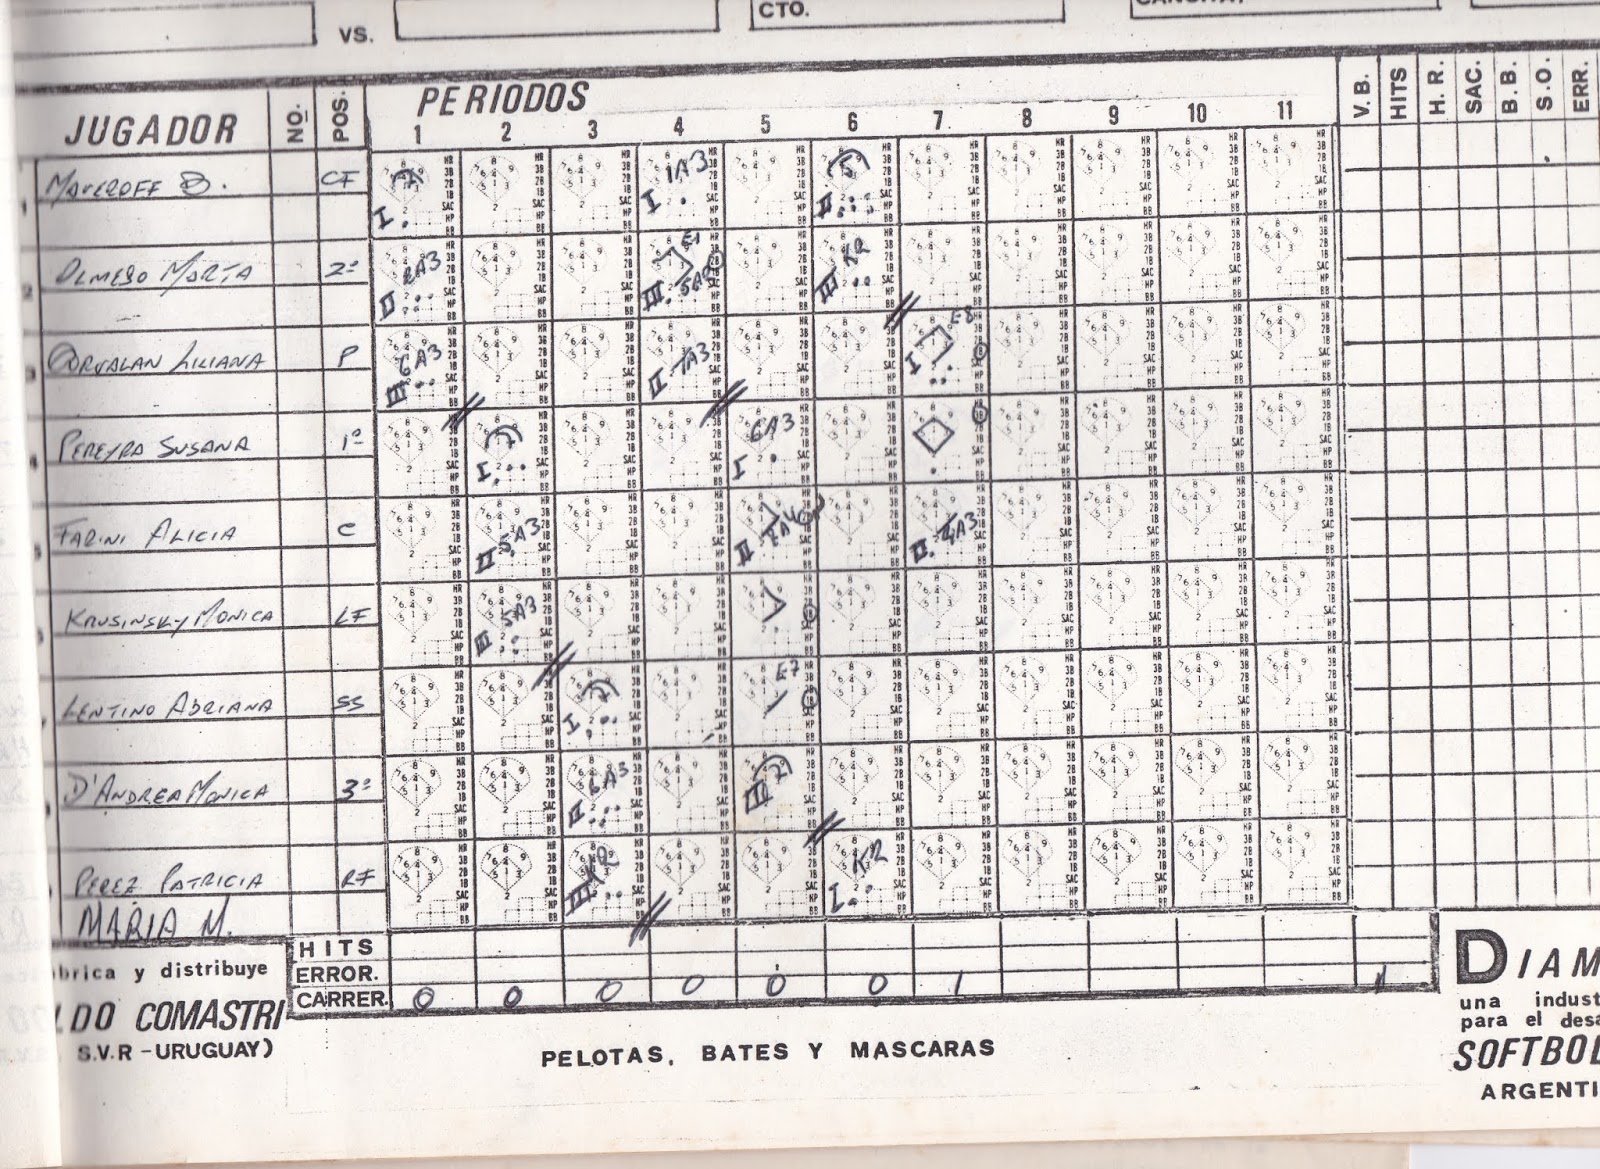 VS.
CTO.
PERIODOS
JUGADOR NO. POS. 1 2 3 4 5 6 7 8 9 10 11 V.B. HITS H.R. SAC. B.B. S.O. ERR.
CF I 7 I 1A3 II 5
OLMEDO MARTA 2ª II 2A3 E1 III 5A2 III KR
LILIANA P III 6A3 II 1A3 I E8
PEREYRA SUSANA 1ª I 7 I 6A3
FARINI ALICIA C II 5A3 II II 4A3
KRUSINSKY MONICA LF III 5A3
LENTINO ADRIANA SS I 7 E7
D'ANDREA MONICA 3ª II 6A3 III 7
PEREZ PATRICIA RF III KR I KR
MARIA M.
HITS
ERROR.
CARRER. 0 0 0 0 0 0 1 1
brica y distribuye
LDO COMASTRI
S.V.R - URUGUAY)
PELOTAS, BATES Y MASCARAS
DIAM
una indust
para el desa
SOFTBOL
ARGENTI